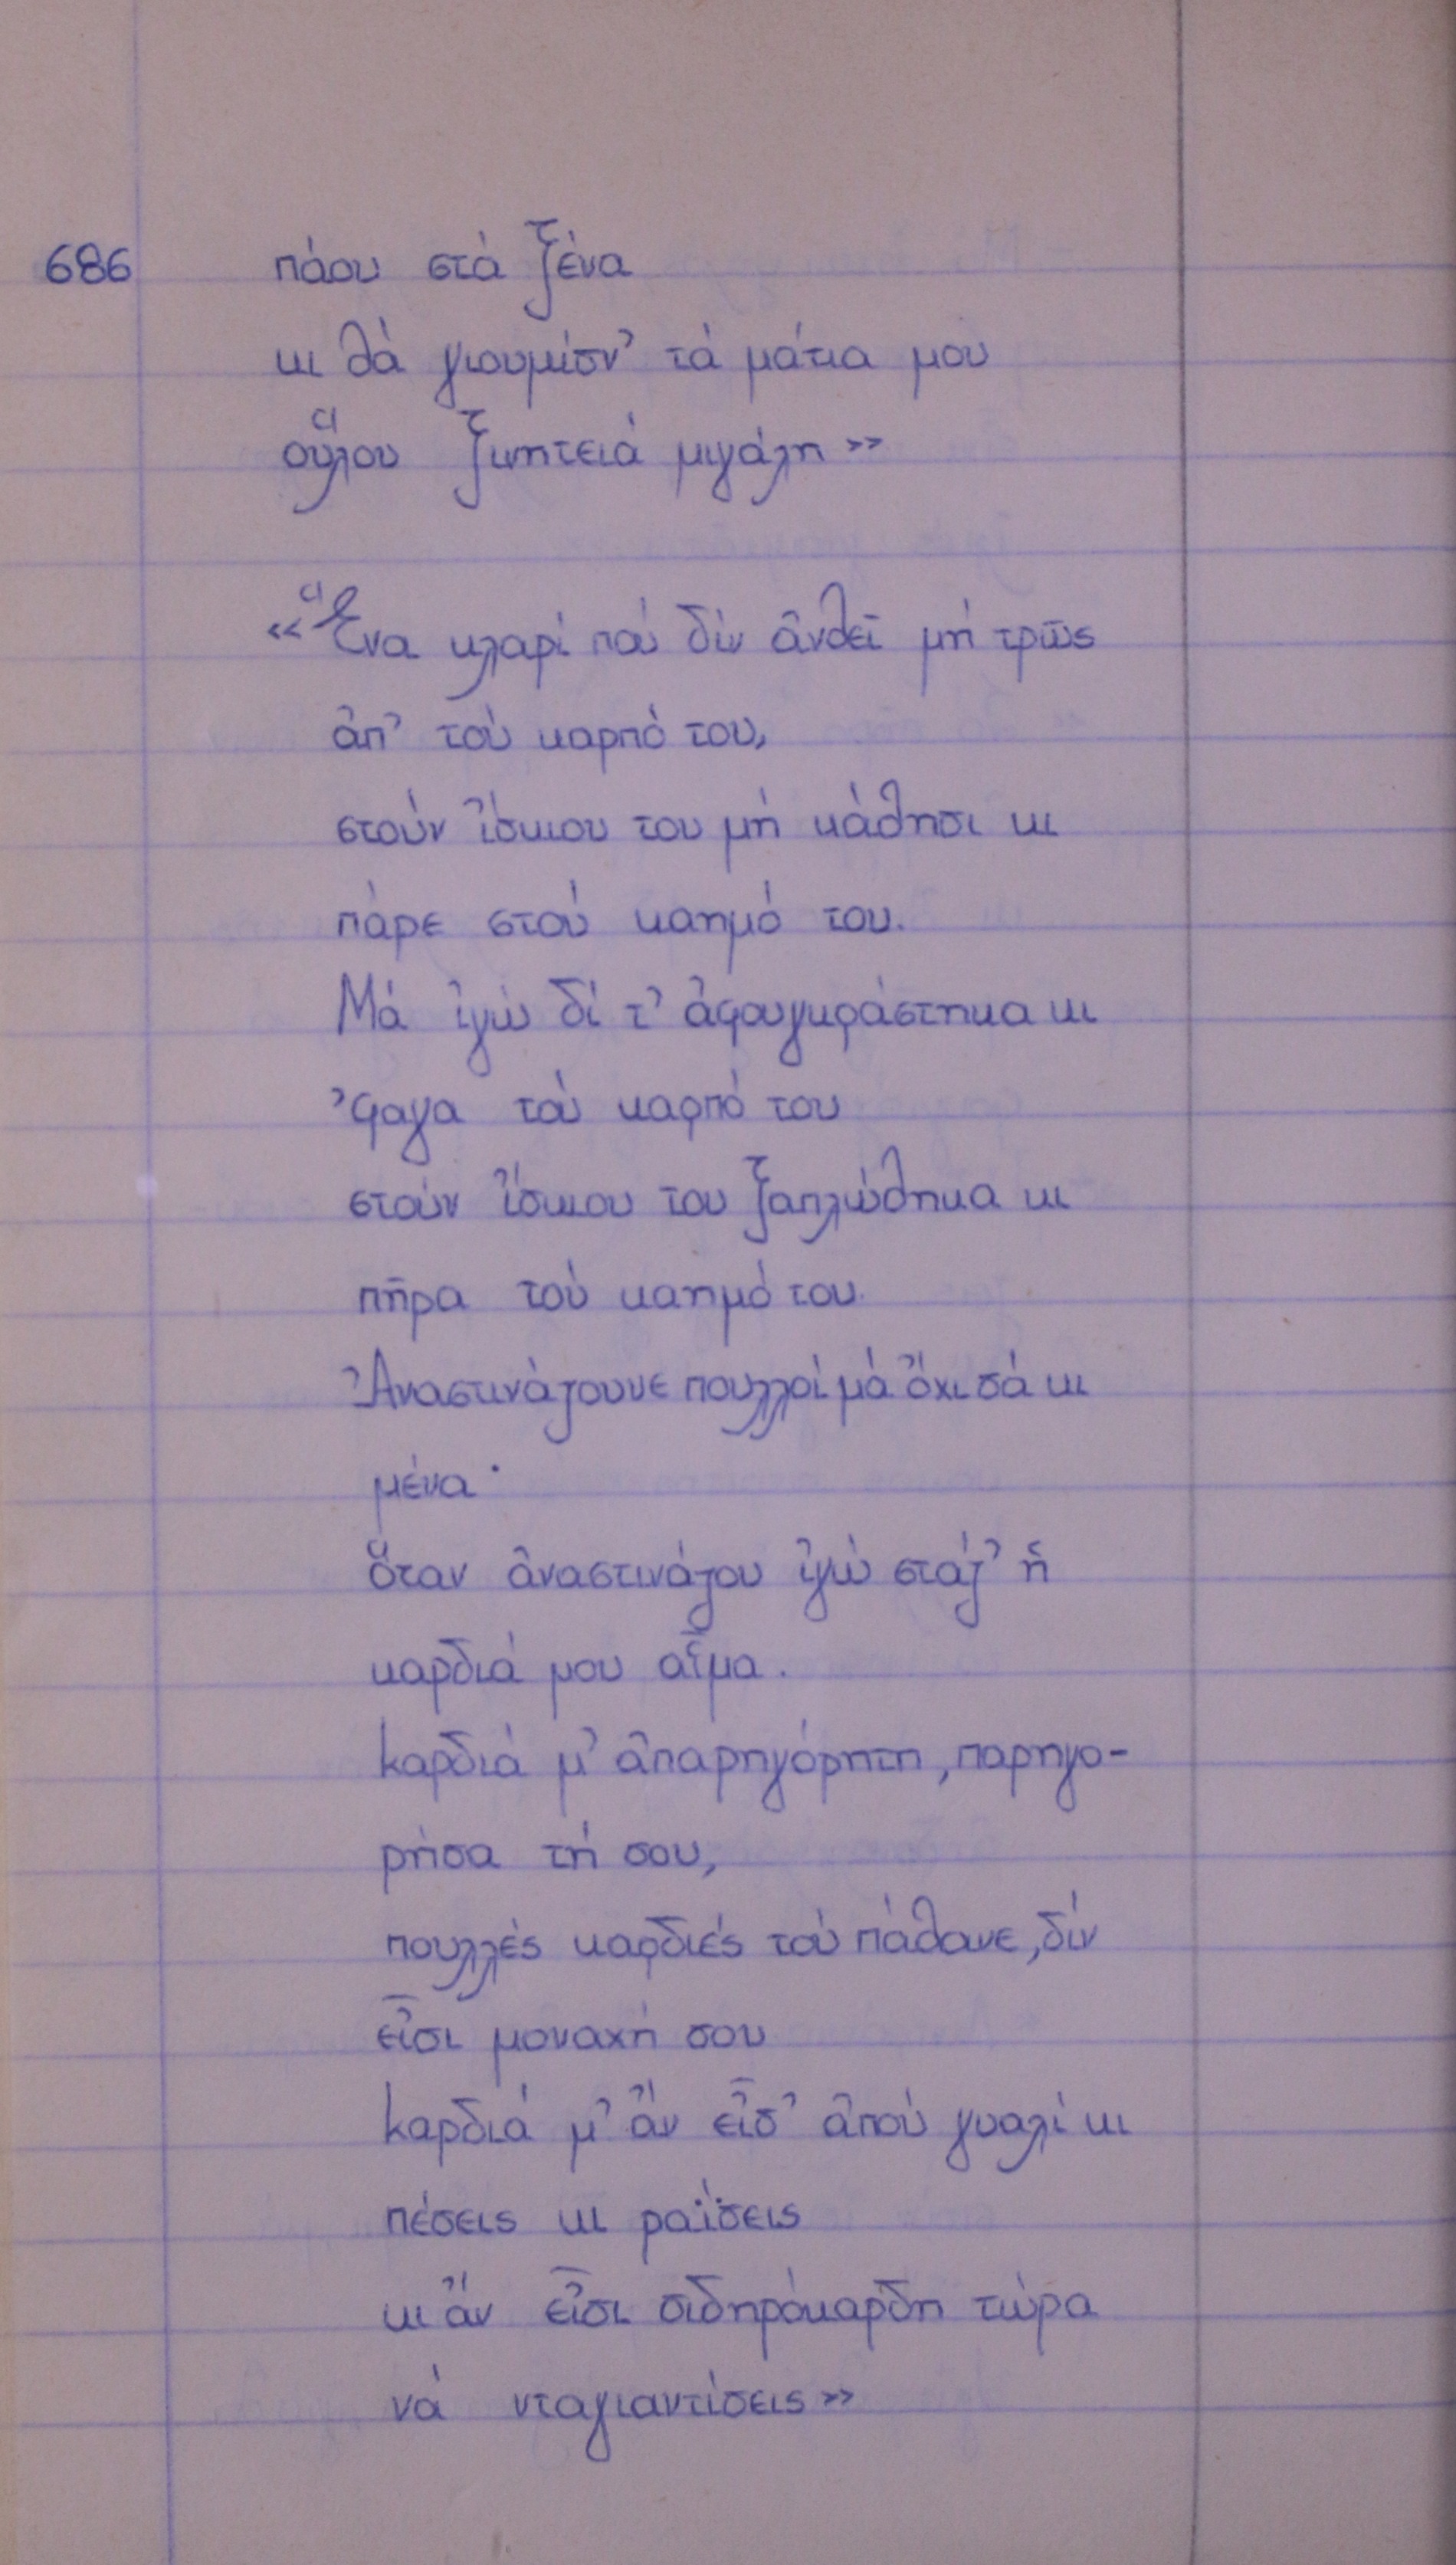 686 πάου στά ξένα
κι θά γιουμίσν' τά μάτια μου
οὕλου ξινητειά μιγάλη»
«Ἕνα κλαρί πού δίν ἀνθεῖ μή τρῶς
ἀπ' τού καρπό του,
στούν ἴσκιου του μή κάθησι κι
πάρε στού καημό του.
Μά ἰγώ δί τ' ἀφουγκράστηκα κι
'φαγα τού καρπό του
στούν ἴσκιου του ξαπλώθηκα κι
πῆρα τού καημό του.
Ἀναστινάζουνε πουλλοί μά ὄχι σά κι
μένα·
ὅταν ἀναστινάζου ἰγώ στάζ' ἡ
καρδιά μου αἷμα.
καρδιά μ' ἀπαρηγόρητη, παρηγο-
ρήσα τή σου,
πουλλές καρδιές τού πάθανε, δίν
εἶσι μοναχή σου
καρδιά μ' ἄν εἶσ' ἀπού γυαλί κι
πέσεις κι ραΐσεις
κι ἄν εἶσι σιδηρόκαρδη τώρα
νά νταγιαντίσεις»